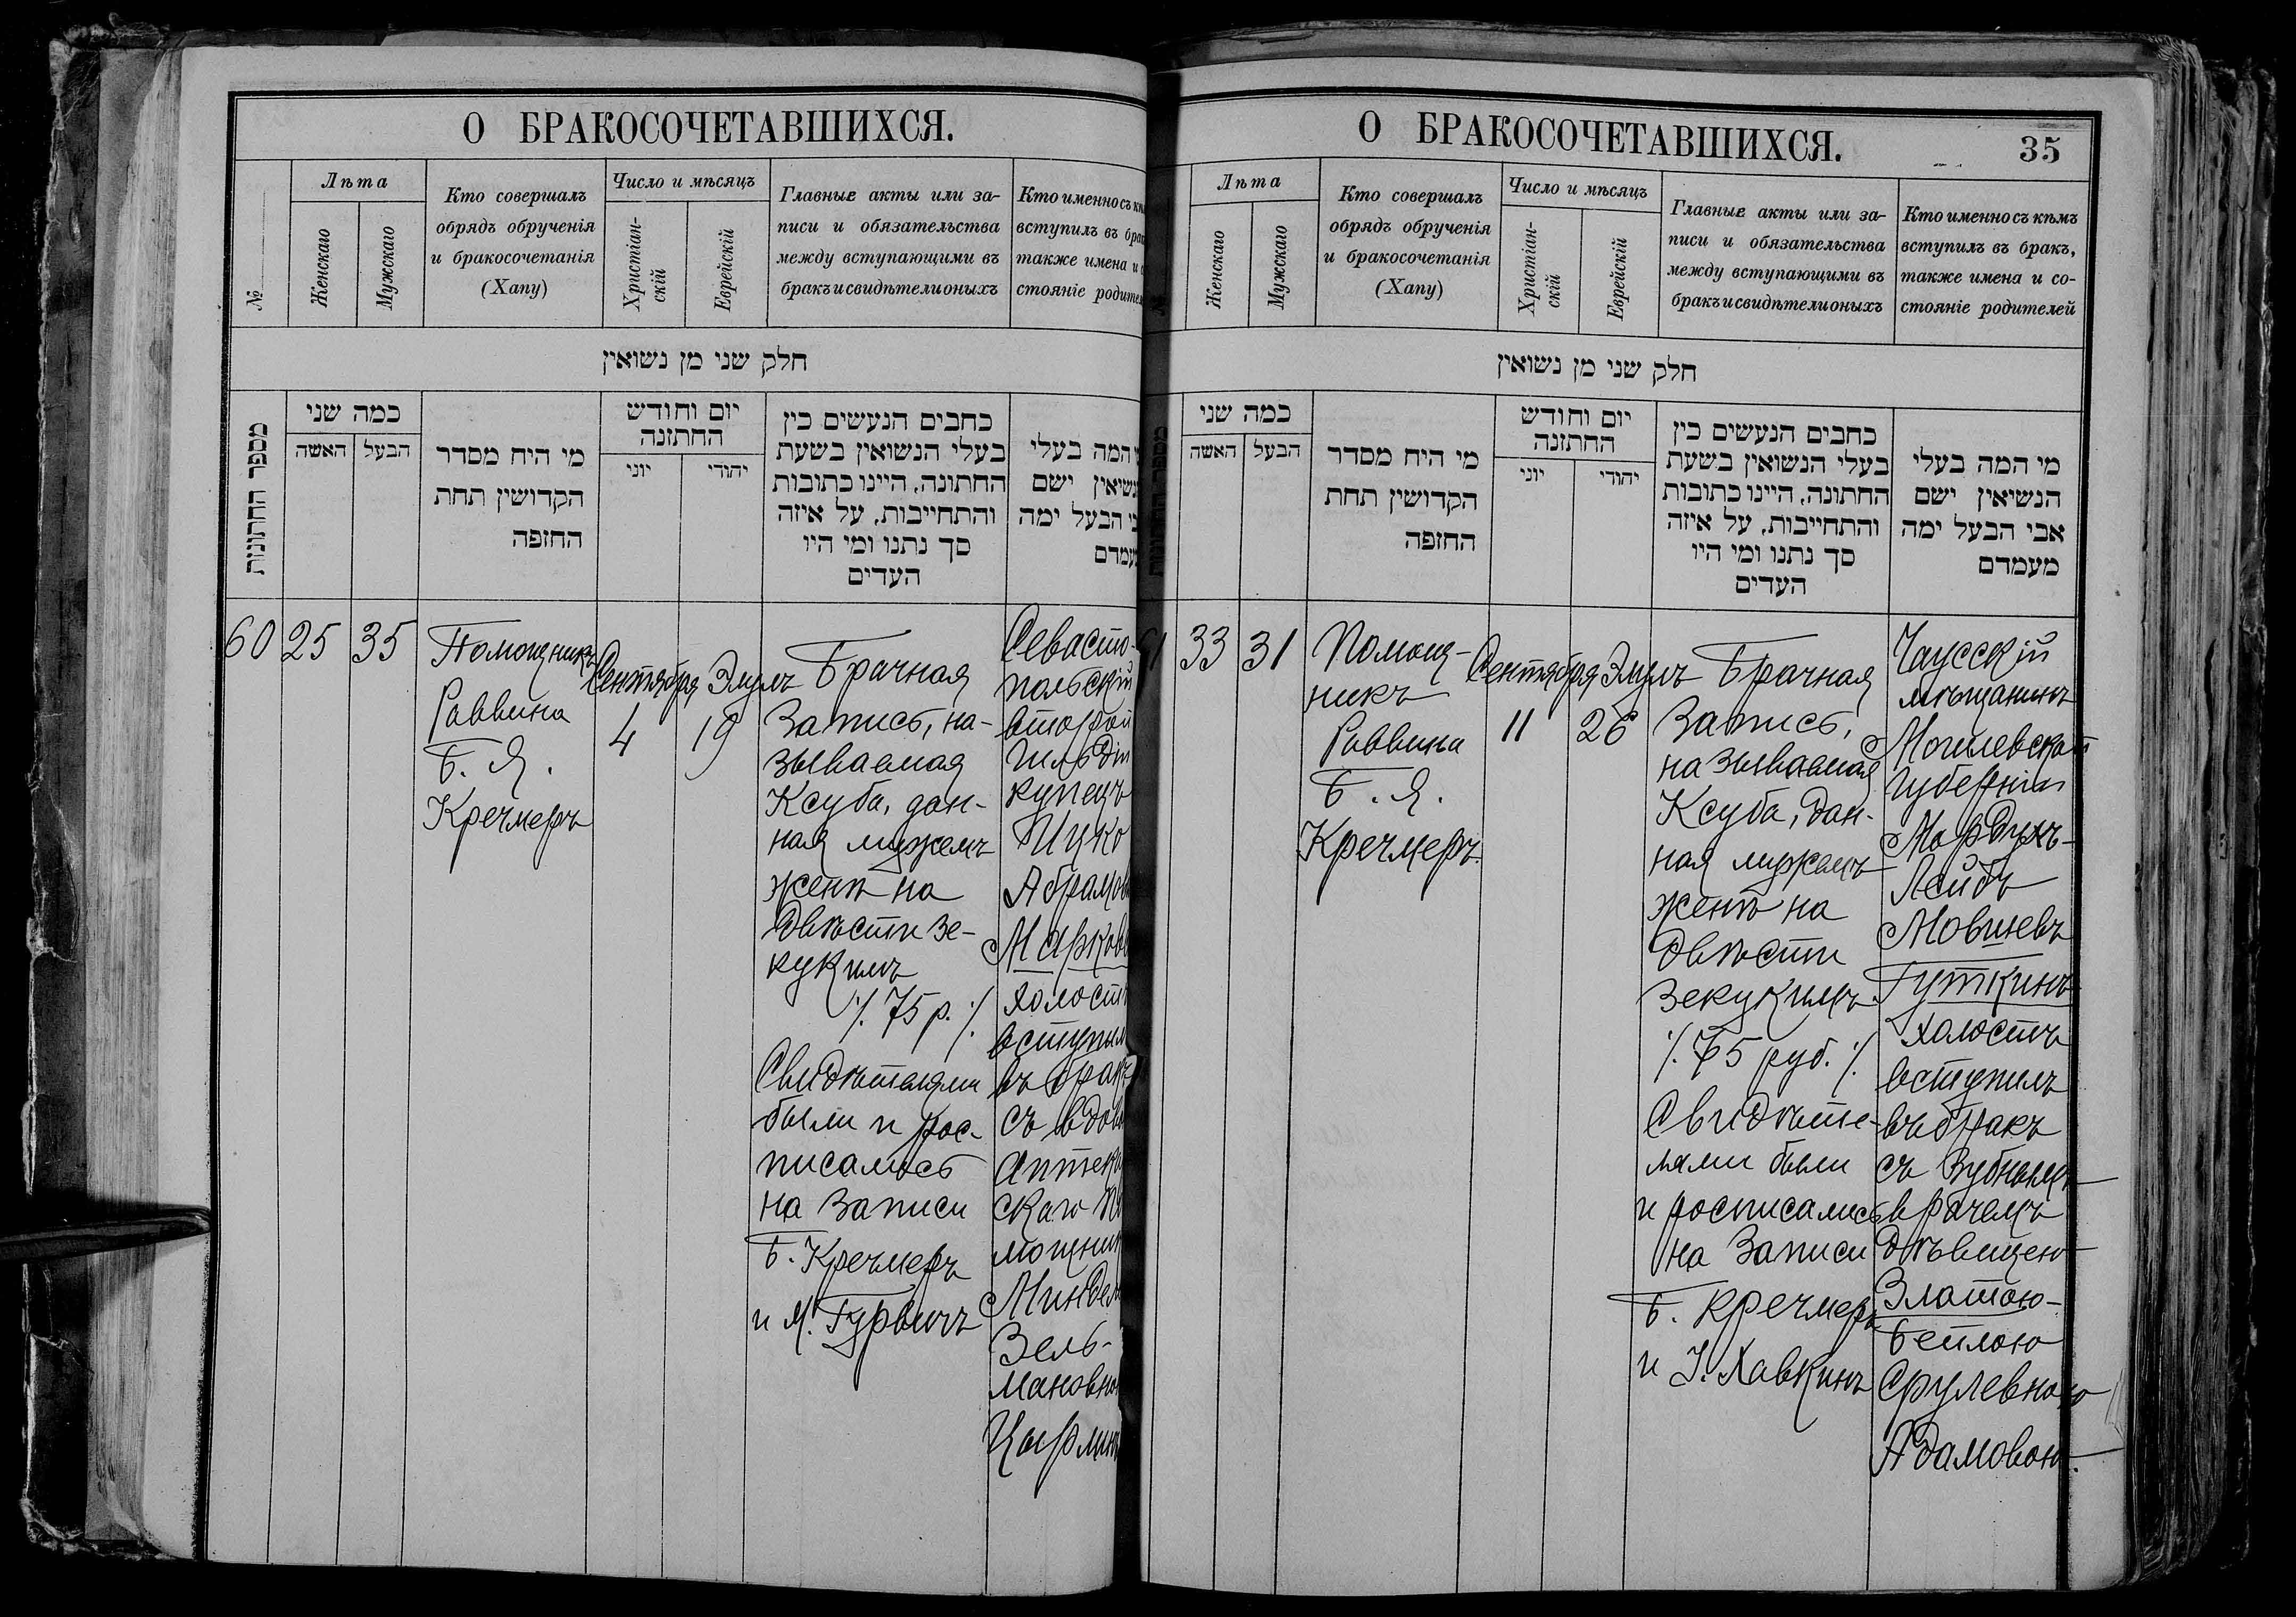 О БРАКОСОЧЕТАВШИХСЯ.
№
Лѣта
Женскаго
Мужскаго
Кто совершалъ
обрядъ обрученія
и бракосочетанія
(Хапу)
Число и мѣсяцъ
Христіан-
скій
Еврейскій
Главные акты или за-
писи и обязательства
между вступающими въ
бракъ и свидѣтели оныхъ
Кто именно съ
вступилъ въ
также имена и
стояніе
חלק שני מן נשואין
מספר החתונות
כמה שני
האשה
הבעל
מי היח מסדר
הקדושין תחת
החזפה
יום וחודש
החתזנה
יוני
יהודי
כחבים הנעשים כין
בעלי הנשואין בשעת
החתונה, היינו כתובות
והתחייבות, על איזה
סך נתנו ומי היו
העדים
המה בעלי
ישם
הבעל ימה
60
25
35
Помощникъ
Раввина
Б. Я.
Кречмеръ
Сентября
4
Элулъ
19
Брачная
Запись, на-
зываемая
Ксуба, дан-
ная мужемъ
женѣ на
двѣсти зе-
кукимъ
⁒ 75 р. ⁒
Свидѣтелями
были и рос-
писались
на записи
Б. Кречмеръ
и М. Гурвичъ
Севасто-
польскій
второй
гильдіи
купецъ
Ицко
въ бракъ
съ
Зель-
О БРАКОСОЧЕТАВШИХСЯ.
35
Лѣта
Женскаго
Мужскаго
Кто совершалъ
обрядъ обрученія
и бракосочетанія
(Хапу)
Число и мѣсяцъ
Христіан-
скій
Еврейскій
Главные акты или за-
писи и обязательства
между вступающими въ
бракъ и свидѣтели оныхъ
Кто именно съ кѣмъ
вступилъ въ бракъ,
также имена и со-
стояніе родителей
חלק שני מן נשואין
כמה שני
האשה
הבעל
מי היח מסדר
הקדושין תחת
החזפה
יום וחודש
החתזנה
יוני
יהודי
כחבים הנעשים כין
בעלי הנשואין בשעת
החתונה, היינו כתובות
והתחייבות, על איזה
סך נתנו ומי היו
העדים
מי המה בעלי
הנשיאין ישם
אבי הבעל ימה
מעמדם
33
31
Помощ-
никъ
Раввина
Б. Я.
Кречмеръ.
Сентября
11
Элулъ
26
Брачная
Запись,
называемая
Ксуба, дан-
ная мужемъ
женѣ на
двѣсти
зекукимъ
⁒ 75 руб. ⁒
Свидѣте-
лями были
и росписались
на записи
Б. Кречмеръ
и І. Хавкинъ
Чаусскій
мѣщанинъ
Могилевской
губерніи
Мордухъ-
Лейбъ
Мовшевъ
Гуткинъ
холостъ
вступилъ
въ бракъ
съ зубнымъ
врачемъ
дѣвицею
Златою-
Бейлою
Срулевною
Адамовою.